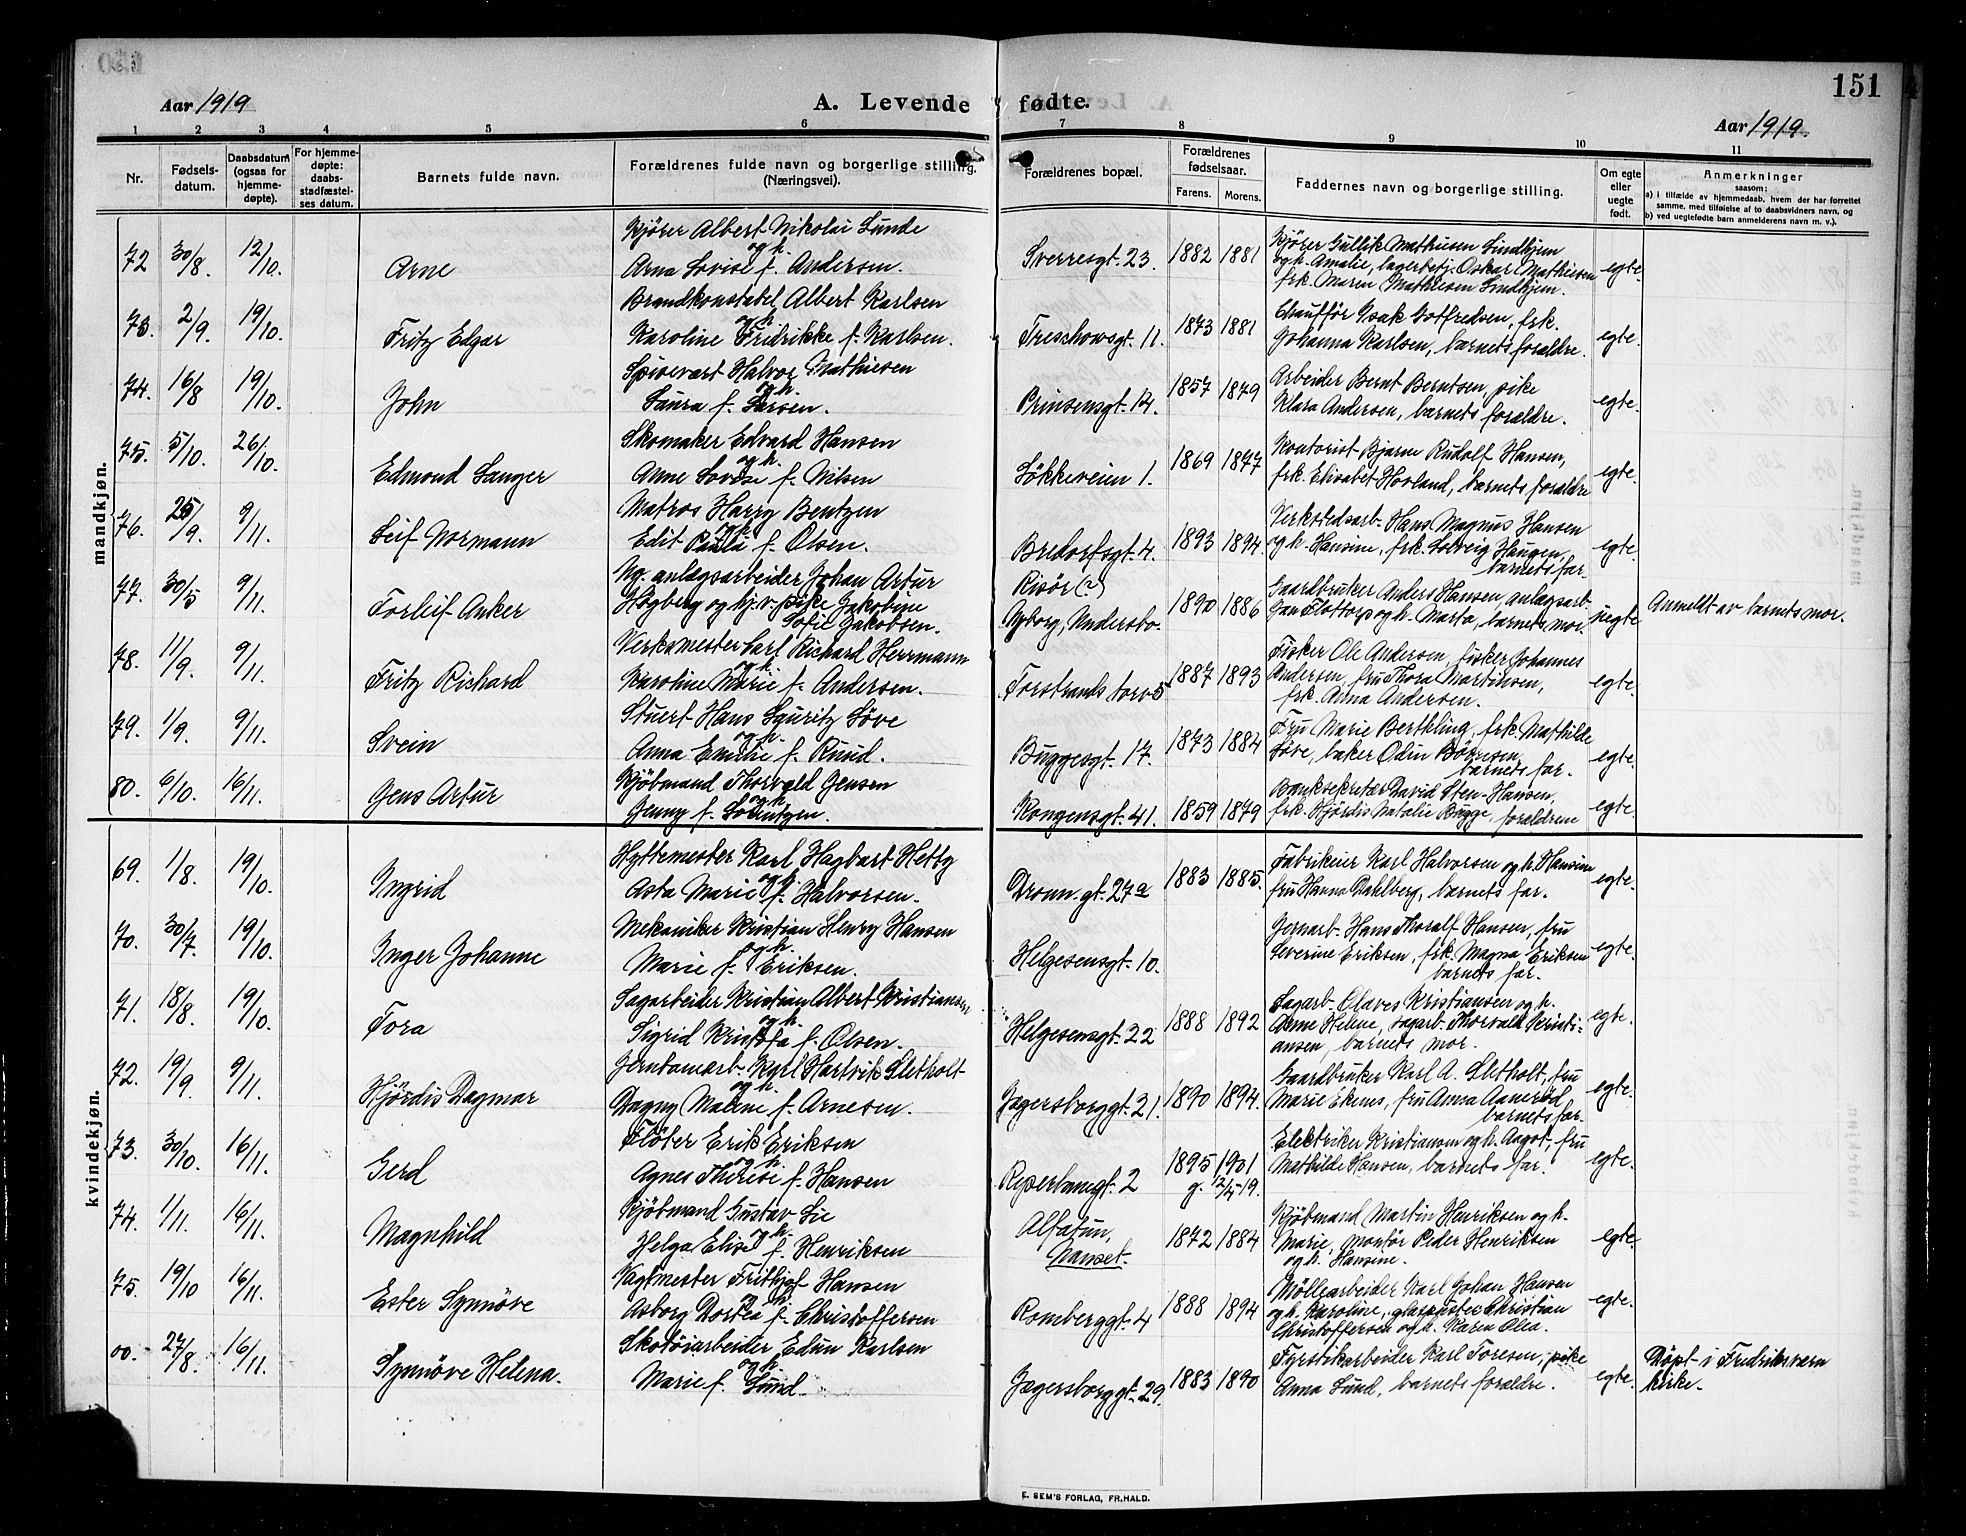 151
Aar 1919 A. Levende fødte. Aar 1919.
1 2 3 4 5 6 7 8 9 10 11
Nr. Fødselsdatum. Daabsdatum (ogsaa for hjemmedøpte). For hjemmedøpte: daabsstadfæstelses datum. Barnets fulde navn. Forældrenes fulde navn og borgerlige stilling. (Næringsvei). Forældrenes bopæl. Forældrenes fødselsaar. Farens. Morens. Faddernes navn og borgerlige stilling. Om egte eller uegte født. Anmerkninger saasom: a) i tilfælde av hjemmedaab, hvem der har forrettet samme, med tilføielse af to daabsvidners navn, og b) ved uegtefødte barn anmelderens navn m. v.).
mandkjøn.
72 30/8. 12/10. Arne Kjører Albert Nikolai Lunde og h. Arna Lovise f. Andersen. Sverresgt. 23. 1882 1881 Kjører Gullik Mathisen Lindhjem og h. Amalie, lagerbetj. Oskar Mathisen frk. Maren Mathisen Lindhjem. egte.
73. 2/9. 19/10. Fritz Edgar Brandkonstabel Albert Karlsen og h. Karoline Fridrikke f. Karlsen. Treschowsgt. 11. 1873 1881 Chauffør Isak Gotfredsen, frk. Johanna Karlsen, barnets foraldre. egte.
74. 16/8 19/10. John Spisevært Halvor Mathisen og h. Laura f. Larsen. Prinsensgt. 14. 1857 1879 Arbeider Bernt Berntsen, pike Klara Andersen, barnets foraldre. egte.
75. 5/10. 26/10. Edmond Sanger Skomaker Edvard Hansen og h. Anne Lovise f. Nilsen Løkkeveien 1. 1869 1877 Kontorist Bjarne Rudolf Hansen, frk. Elisabet Hovland, barnets foraldre egte.
76. 25/9. 9/11. Leif Normann Matros Harry Bentzen og h. Edit Paula f. Olsen. Bredorfsgt. 4. 1893 1894. Verkstedsarb. Hans Magnus Hansen og h. Hansine, frk. Solveig Haugen, barnets far. egte.
77. 30/5 9/11. Torleif Anker Ug. anlægsarbeider Johan Artur Högberg og hj.v. pike Jakobine Sofie Jakobsen. Risör (?) Nyborg, Undersbo. 1890 1886 Gaardbruker Anders Hansen, anlægsarb. Jan Flottorp og h. Marta, barnets mor. uegte Anmeldt av barnets mor.
78. 11/9. 9/11. Fritz Richard Verksmester Carl Richard Herrmann og h. Karoline Marie f. Andersen. Torstrands torv 5 1887 1893 Fisker Ole Andersen, fisker Johannes Andersen, fru Thora Martinsen, frk. Anna Andersen. egte.
79. 1/9. 9/11. Svein Stuert Hans Lauritz Löve og h. Anna Emilie f. Ruud. Buggesgt. 17. 1873 1884 Fru Marie Bertkling, frk. Mathilde Löve, baker Odin Börresen, barnets far. egte.
80. 6/10. 16/11. Jens Artur Kjöbmand Thorvald Jensen og h. Jenny f. Lorentzen. Kongensgt. 41. 1859 1879 Banksekretær David Sten-Hansen, frk. Hjördis Natalie Bugge, forældrene egte.
kvindekjøn.
69. 1/8. 19/10. Ingrid Hyttemester Karl Hagbart Hetty og h. Asta Marie f. Halvorsen. Dronn.gt. 27a 1883 1885. Fabrikeier Karl Halvorsen og h. Hansine fru Hanna Dahlberg, barnets far. egte.
70. 30/7. 19/10. Inger Johanne Mekaniker Kristian Henry Hansen og h. Marie f. Eriksen. Helgesensgt. 10. Jernarb. Hans Thoralf Hansen, fru Severine Eriksen, frk. Magna Eriksen barnets far. egte.
71. 18/8. 19/10. Tora Sagarbeider Kristian Albert Kristiansen og h. Sigrid Kristofa f. Olsen. Helgesensgt. 22 1888 1892 Sagarb. Olaves Kristiansen og h. Anne Helene, sagarb. Thorvald Kristiansen, barnets mor. egte.
72. 19/9. 9/11. Hjördis Dagmar Jerntomarb. Karl Hartvik Sletholt og h. Dagny Malene f. Arnesen. Jegersborggt. 21. 1890 1894. Gaardbruker Karl A. Sletholt, fru Marie Ekenes, fru Anna Aaneröd barnets far. egte.
73. 30/10. 16/11. Gerd Fløter Erik Eriksen og h. Agnes Therese f. Hansen Reperbangt. 2 1895 1901 g. 12/4 19. Elektriker Kristiansen og h. Aagot, fru Mathilde Hansen, barnets far. egte.
74. 1/11. 16/11. Magnhild Kjöbmand Gustav Lie og h. Helga Elise f. Henriksen Alfatun, Nanset. 1872 1884 Kjöbmand Martin Henriksen og h. Marie, montör Peder Henriksen og h. Hansine. egte.
75. 19/10 16/11. Ester Synnöve Vagtmester Frithjof Hansen og h. Asborg Dortea f. Christoffersen Romberggt. 4 1888 1894 Möllearbeider Karl Johan Hansen og h. Karoline, glaspuster Christian Christoffersen og h. Karen Olea. egte.
00. 27/8. 16/11. Synnöve Helena. Skotöiarbeider Edvin Karlsen og h. Marie f. Lund. Jegersborggt. 29. 1883 1890 Fyrstikarbeider Karl Toresen, pike Anna Lund, barnets foraldre. egte. Döpt i Fredriksværn kirke.
E. SEM'S FORLAG, FR.HALD.